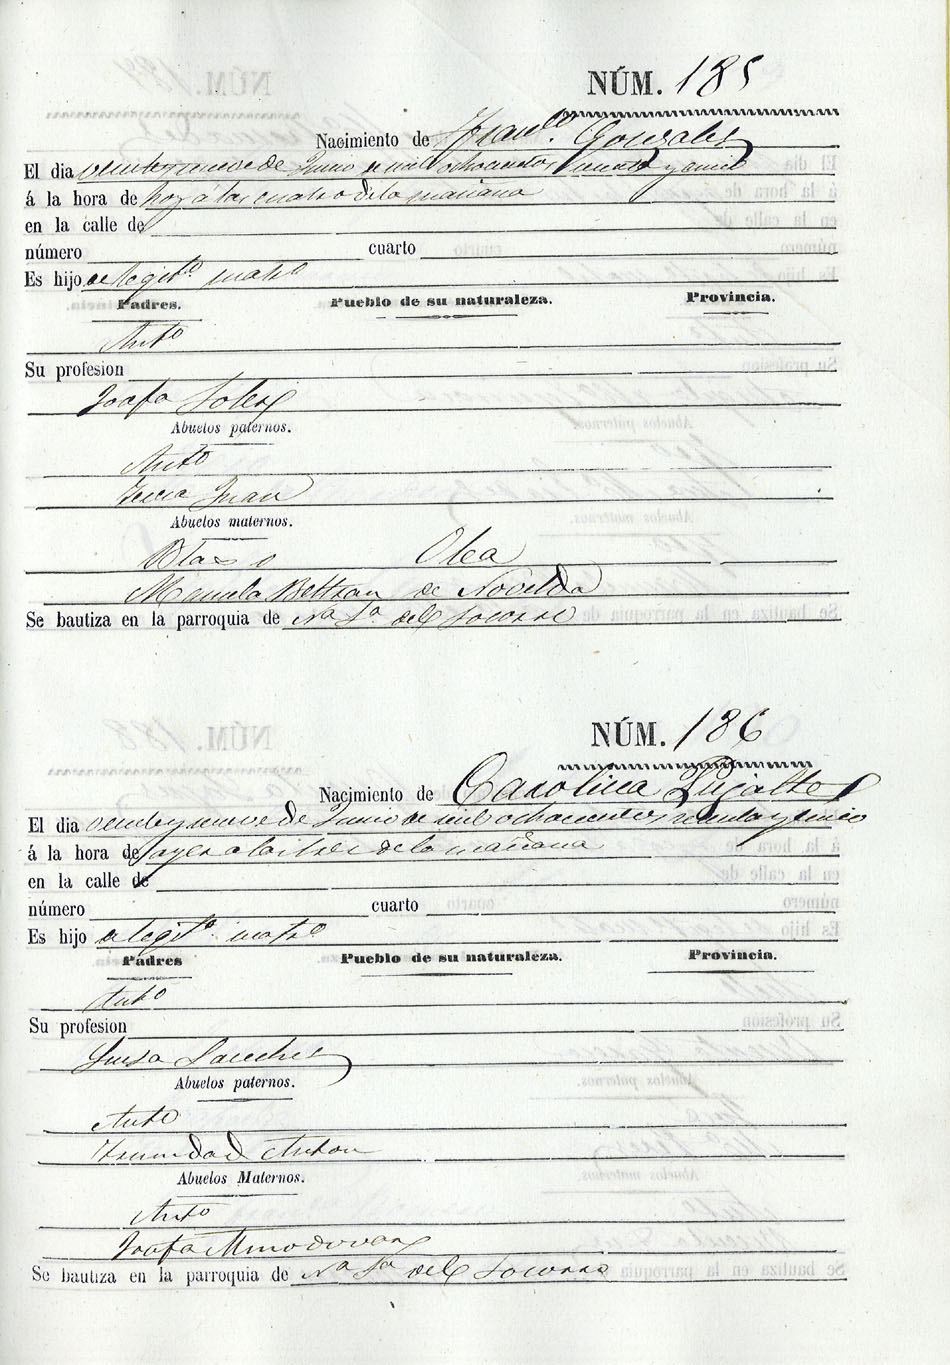 NÚM. 185
Nacimiento de Franco. Gonzalez
El dia veinte y nueve de Junio de mil ochocientos y cinco
á la hora de hoy á las cuatro de la mañana
en la calle de
número cuarto
Es hijo de legito. mato
Padres. Pueblo de su naturaleza. Provincia.
Anto
Su profesion
Josefa Soler
Abuelos paternos.
Anto
Juan
Abuelos maternos.
Blas Olea
Manuela Beltran de Novelda
Se bautiza en la parroquia de Na. Sa. del Socorro
NÚM. 186
Nacimiento de Carolina Pujalte
El dia veinte y nueve de Junio de mil ochocientos y cinco
á la hora de ayer a las tres de la mañana
en la calle de
número cuarto
Es hijo de legito. mato
Padres Pueblo de su naturaleza. Provincia.
Anto
Su profesion
Luisa Sanchez
Abuelos paternos.
Anto
Trinidad Anton
Abuelos Maternos.
Anto
Josefa Almodovar
Se bautiza en la parroquia de Na. Sa. del Socorro